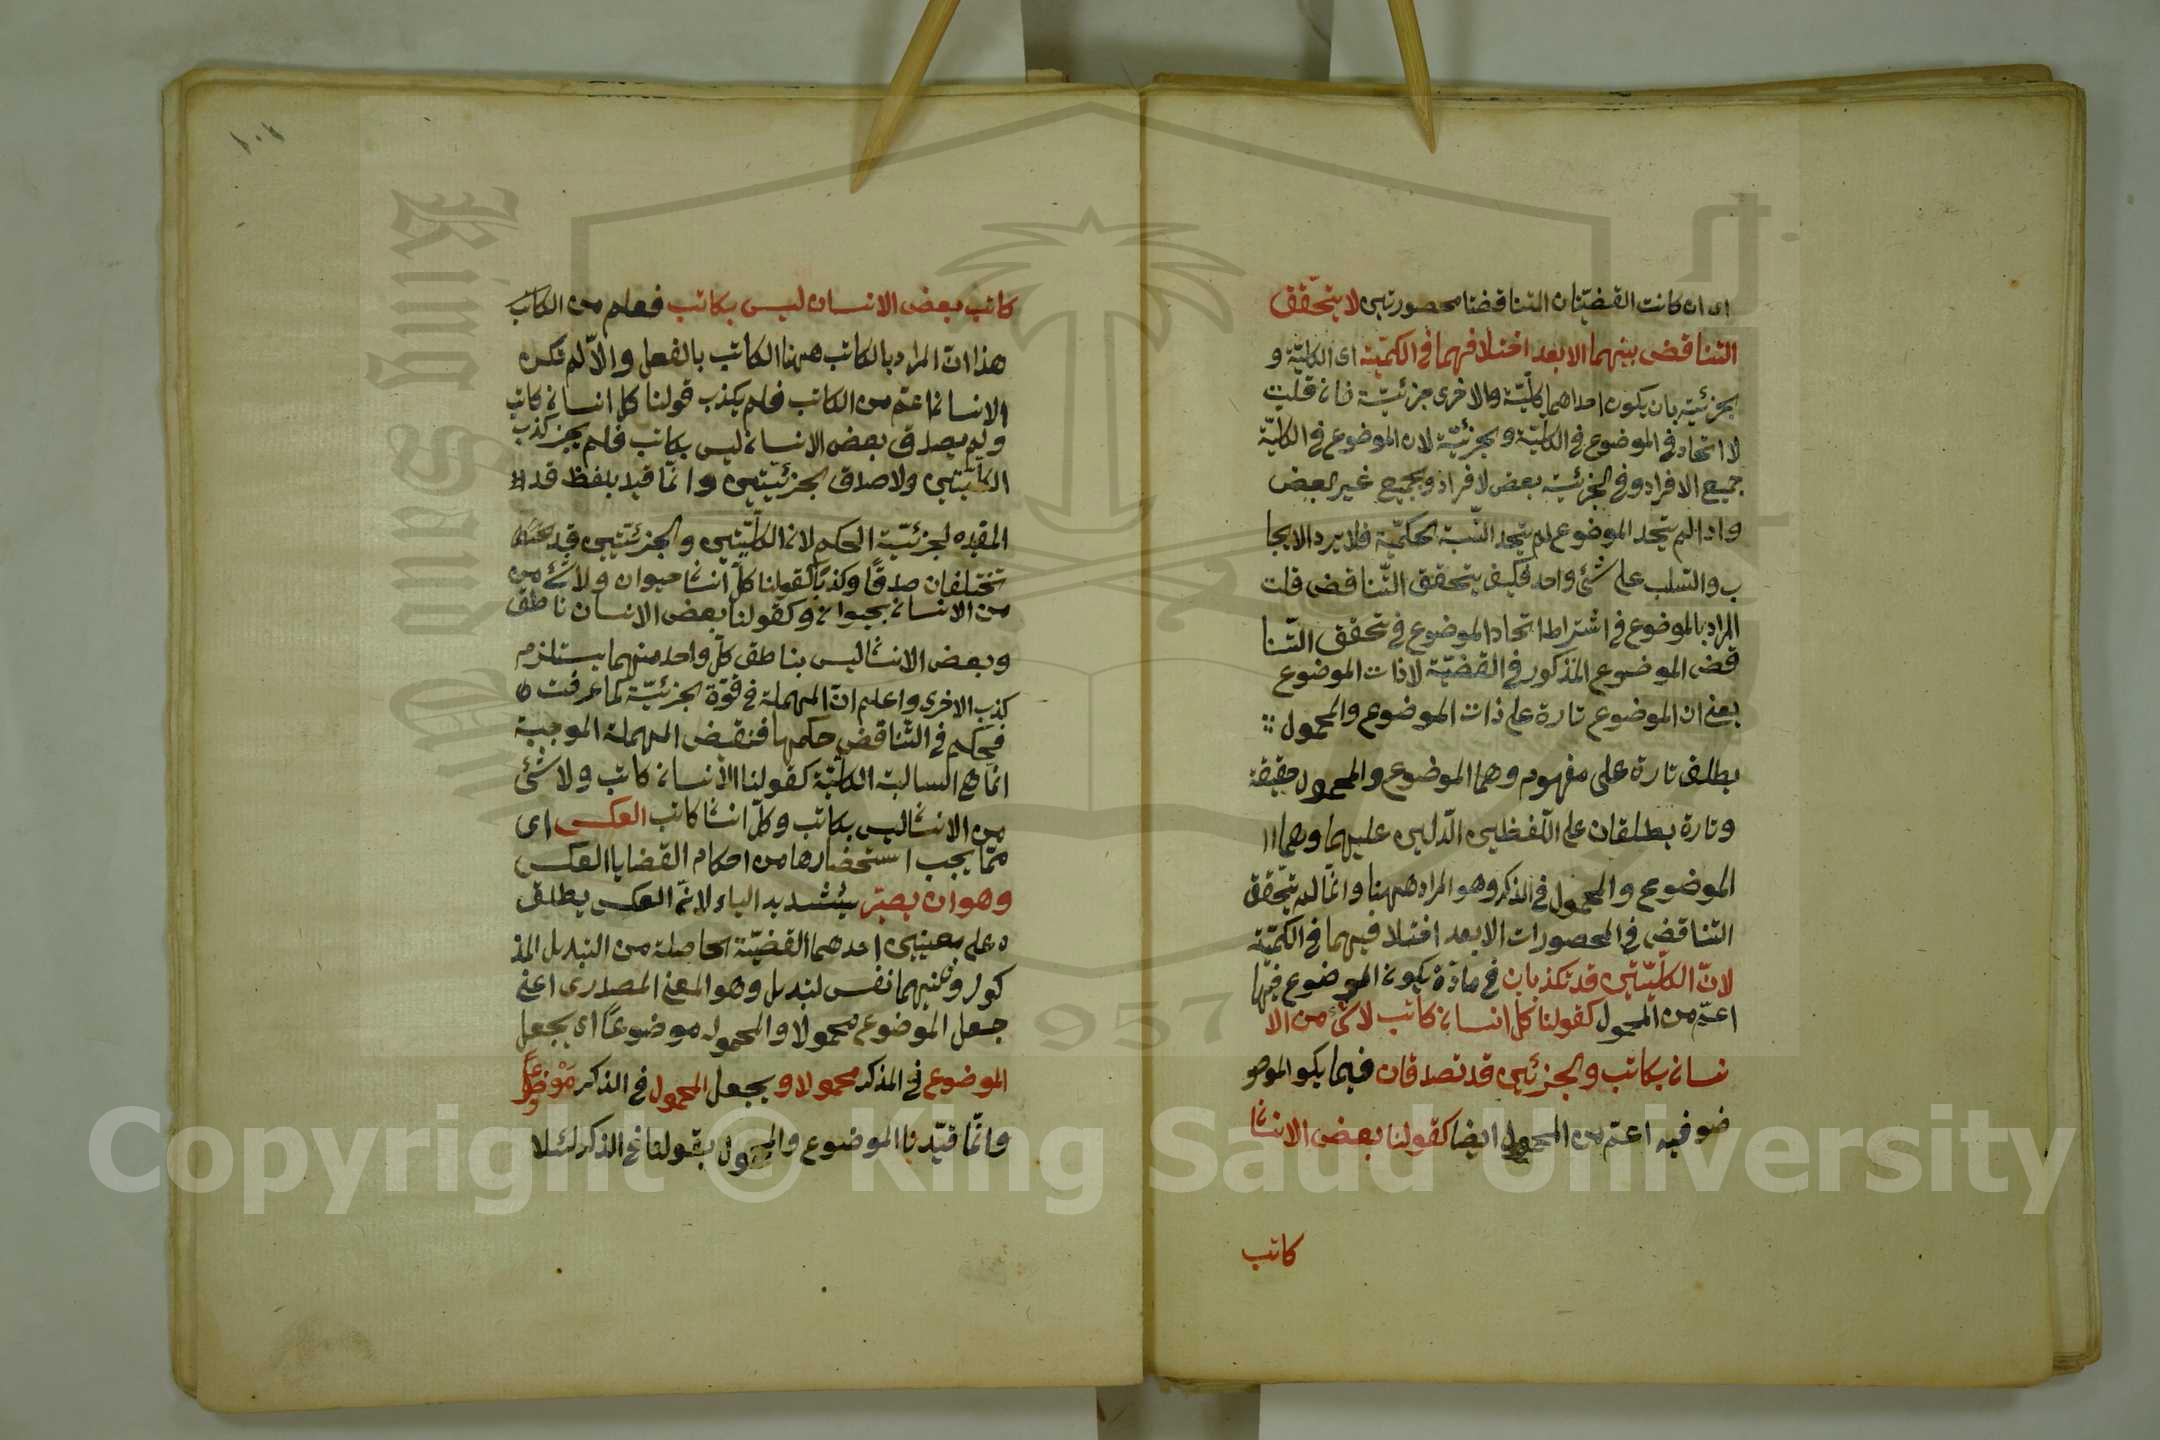 اى ان كانت القضيّتان التناقضتا محصورتين لا يتحّقق
التناقض بينهما الا بعد اختلافهما فى الكميّة اى الكليّة و
لجزئيّة بان يكون احداهما كليّة والاخرى جزئيّة فان قلت
لا اتحاد فى الموضوع فى الكليّة ولجزئيّة لان الموضوع فى الكليّة
جميع الافراد وفى الجزئيّة بعض لافراد ولجميع غير البعض
واذا لم يتحد الموضوع لم يتحد النّسبة الحكميّة فلا يرد الايجا
ب والسّلب على شئ واحد فكيف يتحقق التّناقض قلت
المراد بالموضوع فى اشتراط اتحاد الموضوع فى تحقق التّنا
قض الموضوع المذكور فى القضيّة لا ذات الموضوع
بعنى ان الموضوع تارة على ذات الموضوع والمحمول
يطلق تارة على مفهوم وهما الموضوع والمحمول حقيقة
وتارة يطلقان على اللّفظين الدّالين عليهما وهما ا
الموضوع والمحمول فى الذكر وهو المراد ههنا وانّما لم يتحّقق
التناقض فى المحصورات الا بعد اختلا فيهما فى الكميّة
لانّ الكلّيّتين قد تكذبان فى مادّة يكون الموضوع فيها
اعمّ من المحمول كقولنا كل انسان كاتب لا شئ من الا
نسان بكاتب والجزئين قد تصدقان فيما يكو الموضو
ضو فيه اعتم من المحمول ايضا كقولنا بعض الانشا
كاتب
١٠٢
كاتب بعض الانسان ليس بكاتب فعلم من الكاتب
هذا انّ المراد بالكاتب ههنا الكاتب بالفعل والاّ لم تكن
الانسان اعمّ من الكاتب فلم يكذب قولنا كل انسان كاتب
ولم يصدق بعض الانسان ليس بكاتب فلم يجز كذب
الكلّيتين ولا صدق لجزئيّتين وانّما قيد بلفظ قد
المقيده لجزئيّة الحكم لان الكلّيتين والجزئيّتين قد
تختلفان صدقًا وكذبًا كقولنا كلّ انشا حيوان ولا شئ من
من الانسان بحيوان وكقولنا بعض الانسان ناطق
وبعض الانشا ليس بناطق كلّ واحد منهما يستلزم
كذب الاخرى واعلم انّ المهملة فى قوّة لجزئيّة كما عرفت
فحكم فى التّناقض حكمها فنقيض المهملة الموجبة
انّما هى السالبة الكليّة كقولنا الانسان كاتب ولا شئ
من الانشا ليس بكاتب وكلّ انشا كاتب العكس اى
ممّا يجب استحضارها من احكام القضايا العكس
وهو ان يصيّر بتشديد الياء لانّ العكس يطلق
ه على معنيين احدهما القضيّة الحاصلة من التبديل المذ
كور وثنيهما نفس لتبديل وهو المعنى المصدرى اعنى
جعل الموضوع محمولا والمحمول موضوعًا اى يجعل
الموضوع فى المذكر محمولا و يجعل المحمول فى الذكر موضوعًا
وانّما قيّدنا الموضوع والمحمول بقولنا فى الذكر لئلا